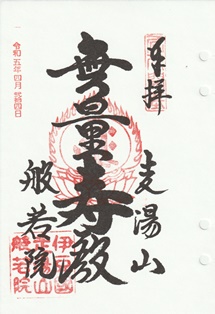 奉拝
走湯山
無量寿殿
般若院
令和五年四月弐拾四日
伊豆國
走湯山
般若院